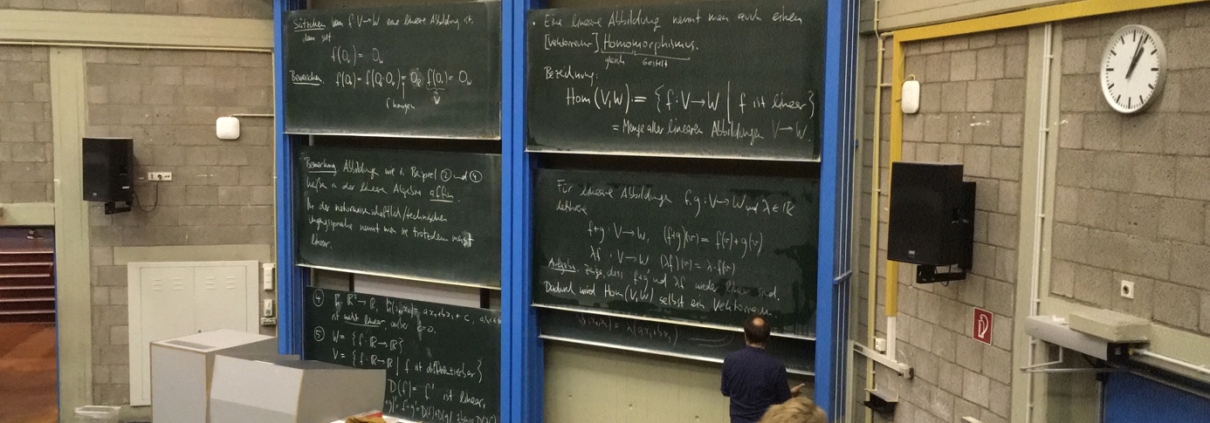 Sätzchen Wenn f: V→W eine lineare Abbildung ist,
dann gilt
f(0ᵥ) = 0_w
Beweischen. f(0ᵥ) = f(0·0ᵥ) = 0 f(0ᵥ) = 0_w
f homogen
Bemerkung Abbildungen wie in Beispiel ② und ④
heißen in der linearen Algebra affin
In der naturwissenschaftlich/technischen
Umgangssprache nennt man sie trotzdem meist
linear.
④ ℝ² → ℝ, + c,
ist nicht linear, außer c=0.
⑤ W = { f: ℝ→ℝ }
V = { f: ℝ→ℝ | f ist differenzierbar }
D(f) = f' ist linear,
• Eine lineare Abbildung nennt man auch einen
[Vektorraum] Homomorphismus.
gleich Gestalt
Bezeichnung:
Hom(V,W) := { f: V→W | f ist linear }
= Menge aller linearen Abbildungen V→W.
Für lineare Abbildungen f,g: V→W und λ∈ℝ
definiere
f+g: V→W, (f+g)(v) = f(v)+g(v)
λf: V→W (λf)(v) = λ·f(v)
Aufgabe: Zeige, dass f+g und λf wieder linear sind.
Dadurch wird Hom(V,W) selbst ein Vektorraum.